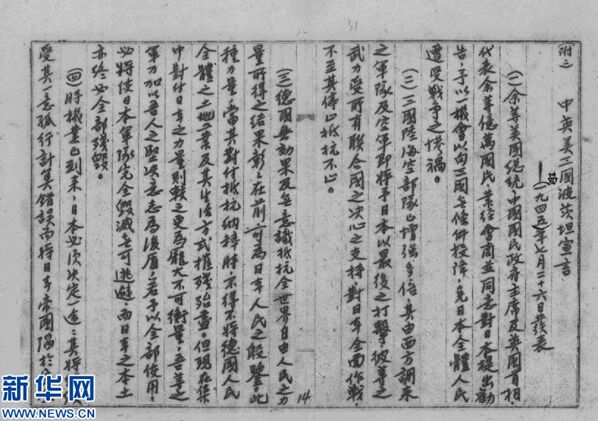 附二 中英美三國波茨坦宣言
(一九四五年七月二十六日發表)
(一)余等美國總統中國國民政府主席及英國首相
代表余等億萬國民，業經會商並同意對日本提出勸
告予以一機會以向三國無條件投降，免日本全體人民
遭受戰爭之慘禍。
(二)三國陸海空部隊已增強多倍，其由西方調來
之軍隊及空軍即將予日本以最後之打擊，彼等之
武力受所有聯合國之決心之支持對日本全面作戰，
不至其停止抵抗不止。
(三)德國無効果及無意識抵抗全世界自由人民之力
量所得之結果彰彰在前可為日本人民之殷鑒此
種力量當其對付抵抗納粹時，不得不將德國人民
全體之土地工業及其生活方式摧殘殆盡，但現在集
中對付日本之力量則較之更為龐大不可衡量，吾等之
軍力加以吾人之堅決意志為後盾，若予以全部使用，
必將使日本軍隊完全毀滅無可逃避而日本之本土
亦終必全部殘毀。
(四)時機業已到來，日本必須決定一途，其將
受其一意孤行計算錯誤而將日本帝國陷於
14
31
新华网
WWW.NEWS.CN